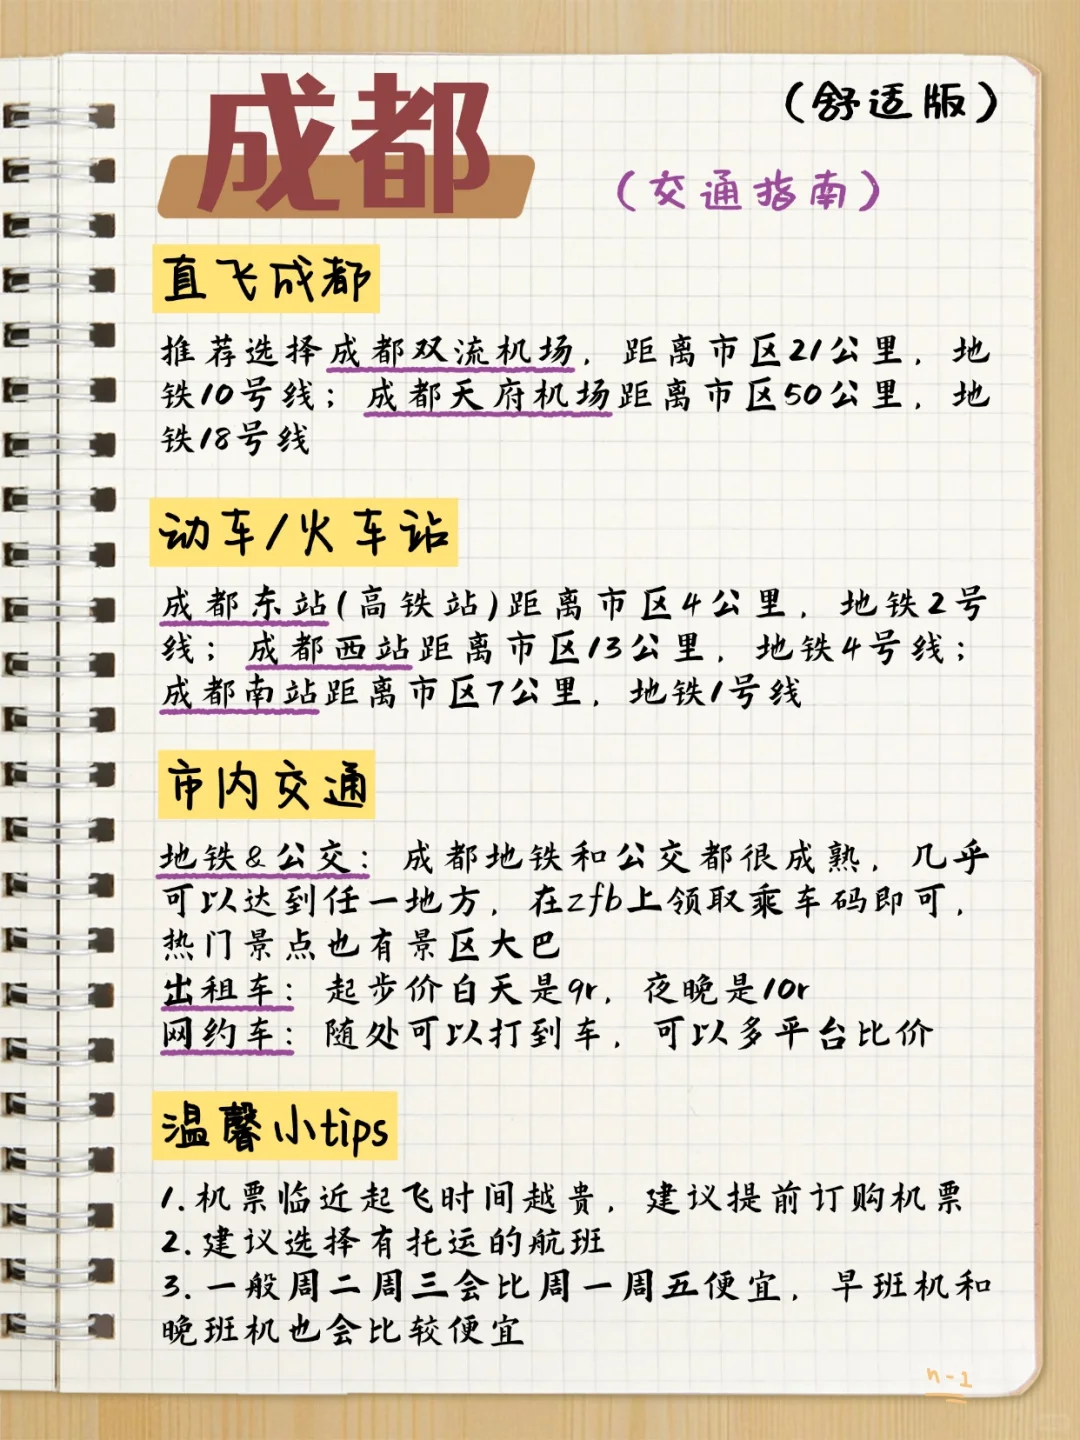 成都
（舒适版）
（交通指南）
直飞成都
推荐选择成都双流机场，距离市区21公里，地
铁10号线；成都天府机场距离市区50公里，地
铁18号线
动车/火车站
成都东站(高铁站)距离市区4公里，地铁2号
线；成都西站距离市区13公里，地铁4号线；
成都南站距离市区7公里，地铁1号线
市内交通
地铁&公交：成都地铁和公交都很成熟，几乎
可以达到任一地方，在zfb上领取乘车码即可，
热门景点也有景区大巴
出租车：起步价白天是9r，夜晚是10r
网约车：随处可以打到车，可以多平台比价
温馨小tips
1.机票临近起飞时间越贵，建议提前订购机票
2.建议选择有托运的航班
3.一般周二周三会比周一周五便宜，早班机和
晚班机也会比较便宜
n-1